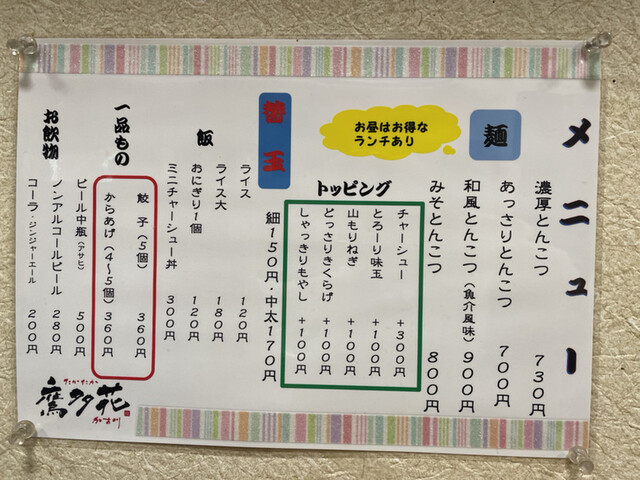 メニュー
麺
濃厚とんこつ 730円
あっさりとんこつ 700円
和風とんこつ(魚介風味) 900円
みそとんこつ 800円
お昼はお得な
ランチあり
トッピング
チャーシュー +300円
とろーり味玉 +100円
山もりねぎ +100円
どっさりきくらげ +100円
しゃっきりもやし +100円
替玉
細150円・中太170円
飯
ライス 120円
ライス大 180円
おにぎり1個 120円
ミニチャーシュー丼 300円
一品もの
餃子(5個) 360円
からあげ(4~5個) 360円
お飲物
ビール中瓶(アサヒ) 500円
ノンアルコールビール 280円
コーラ・ジンジャーエール 200円
鷹多花